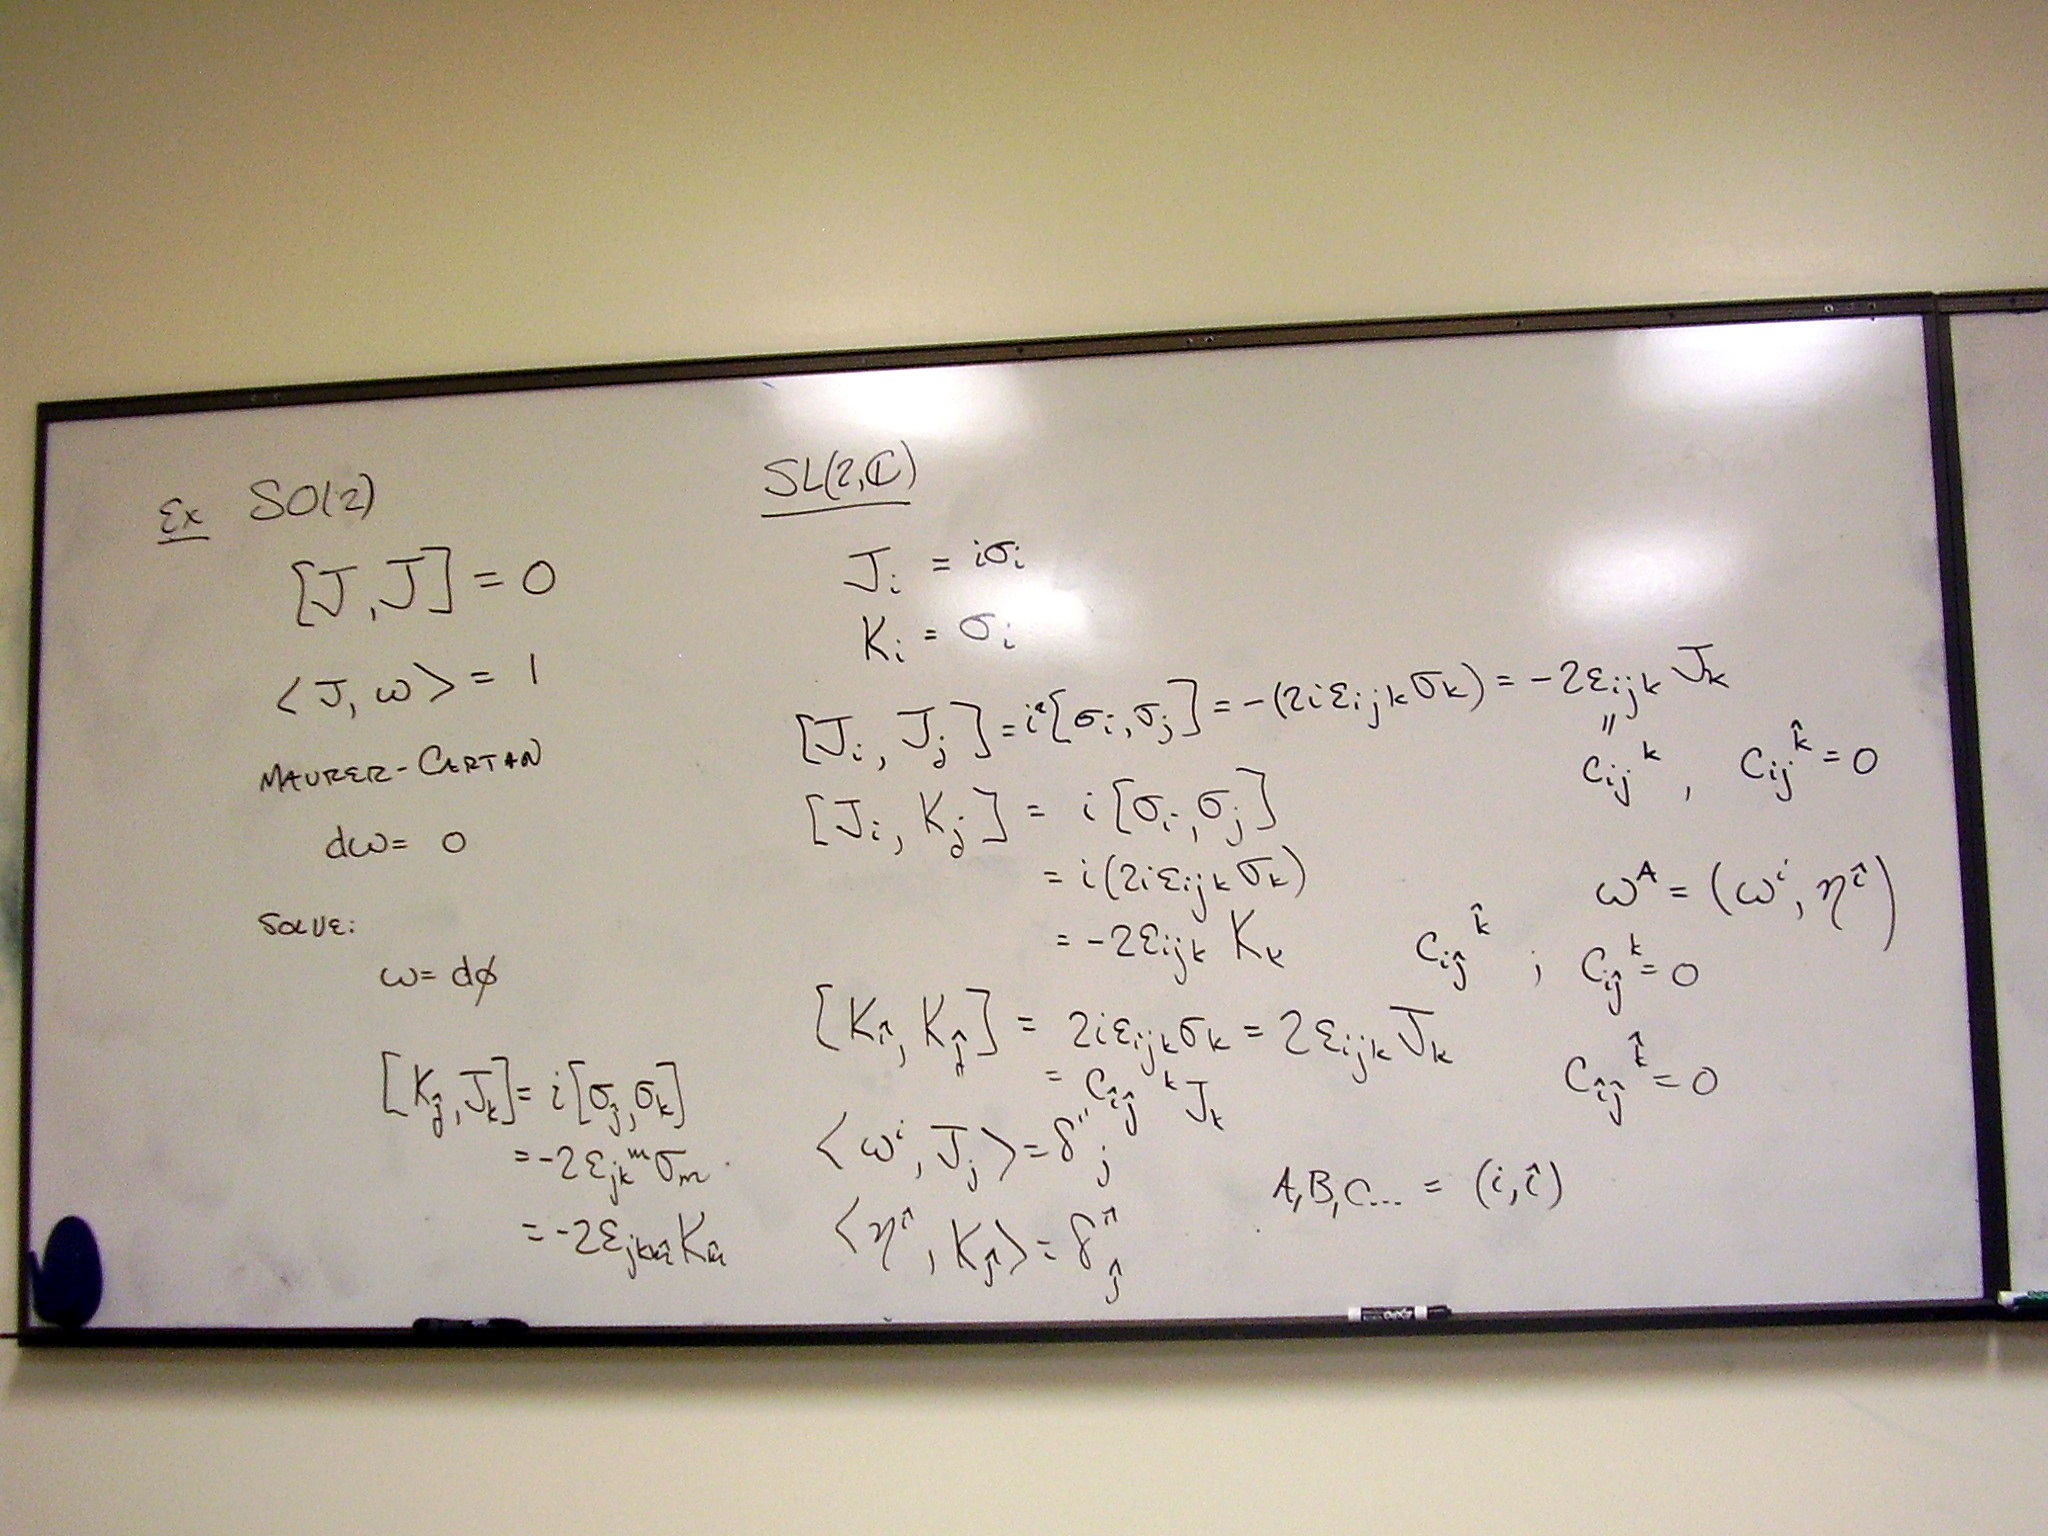 Ex SO(2)
[J, J] = 0
<J, ω> = 1
MAURER-CARTAN
dω = 0
SOLVE:
ω = dφ
[K_ĵ, J_k] = i[σ_ĵ, σ_k]
= -2ε_jk^m σ_m
= -2ε_jkm̂ K_m̂
SL(2,ℂ)
J_i = iσ_i
K_i = σ_i
[J_i, J_j] = i²[σ_i, σ_j] = -(2iε_ijk σ_k) = -2ε_ijk J_k
"
c_ij^k , c_ij^k̂ = 0
[J_i, K_j] = i[σ_i, σ_j]
= i(2iε_ijk σ_k)
= -2ε_ijk K_k
ω^A = (ω^i, η^î)
c_iĵ^k̂ ; c_iĵ^k = 0
[K_î, K_ĵ] = 2iε_ijk σ_k = 2ε_ijk J_k
= c_îĵ^k J_k
c_îĵ^k̂ = 0
<ω^i, J_j> = δ^i_j
<η^î, K_ĵ> = δ^î_ĵ
A,B,C... = (i, î)